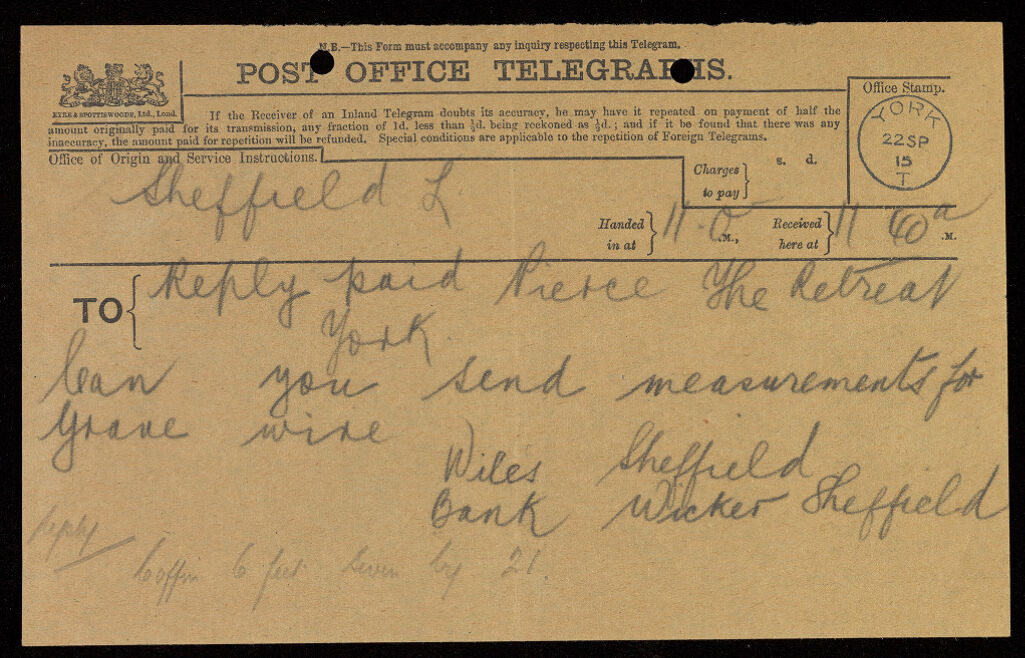 N.B.—This Form must accompany any inquiry respecting this Telegram.
POST OFFICE TELEGRAPHS.
EYRE & SPOTTISWOODE, Ltd., Lond.
If the Receiver of an Inland Telegram doubts its accuracy, he may have it repeated on payment of half the
amount originally paid for its transmission, any fraction of 1d. less than ½d. being reckoned as ½d.; and if it be found that there was any
inaccuracy, the amount paid for repetition will be refunded. Special conditions are applicable to the repetition of Foreign Telegrams.
Office Stamp.
YORK
22 SP
15
T
Office of Origin and Service Instructions.
Sheffield L
Charges to pay } s. d.
Handed in at } 11.0 .M., Received here at } 11 40 a .M.
TO { Reply paid Pierce The Retreat
York.
Can you send measurements for
Grave wire
Wiles Sheffield
Bank Wicker Sheffield
reply
Coffin 6 feet seven by 21.